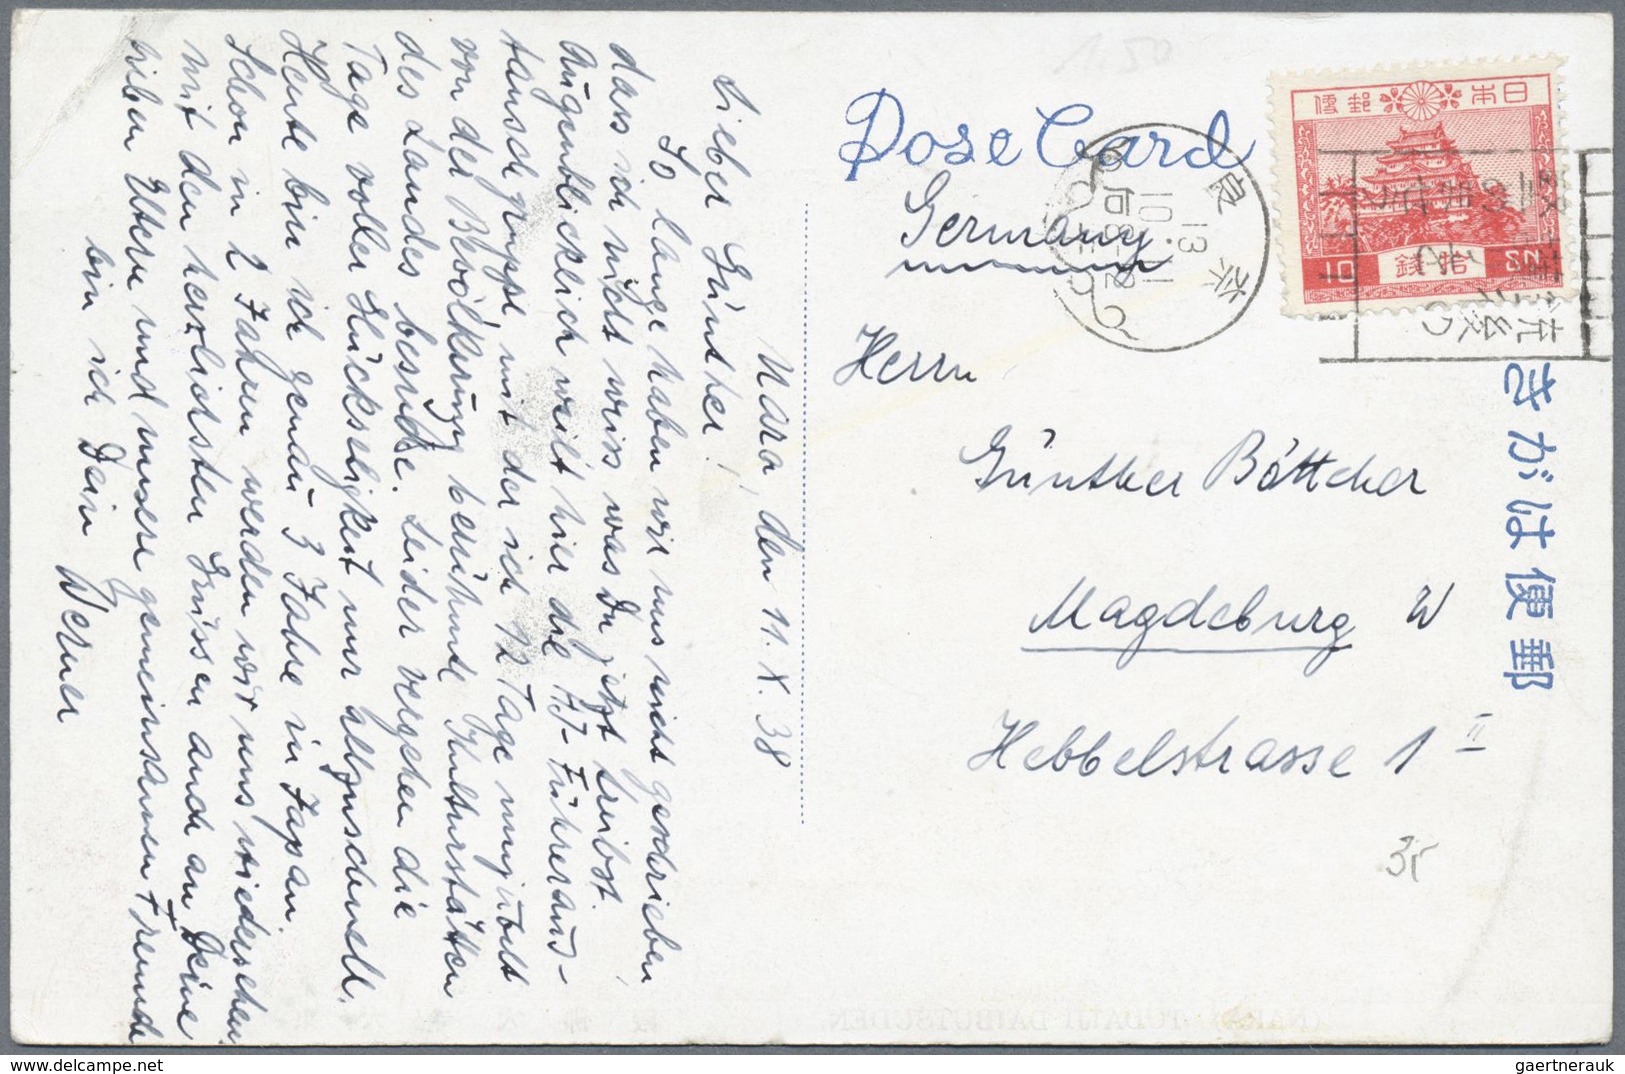 Nara, den 11. X. 38
Lieber Günther!
So lange haben wir uns nicht geschrieben,
dass ich nicht weiss was Du jetzt treibst.
Augenblicklich weilt hier die HJ-Führeraus-
tauschgruppe mit der ich 12 Tage mitjubelt
von der Bevölkerung berühmte Kulturstätten
des Landes besuche. Leider vergehen die
Tage voller Glückseligkeit nur allzuschnell.
Heute bin ich genau 3 Jahre in Japan.
Schon in 2 Jahren werden wir uns wiedersehen.
Mit den herzlichsten Grüssen auch an Deine
lieben Eltern und unsere gemeinsamen Freunde
bin ich Dein
Werner
1.50
Dose Card
Germany
Herrn
Günther Böttcher
Magdeburg W
Hebbelstrasse 1 II
35
日本郵便
拾錢
奈良
13.10.11
きがは便郵
(NARA) TODAIJI DAIBUTSUDEN.
gaertnerauk